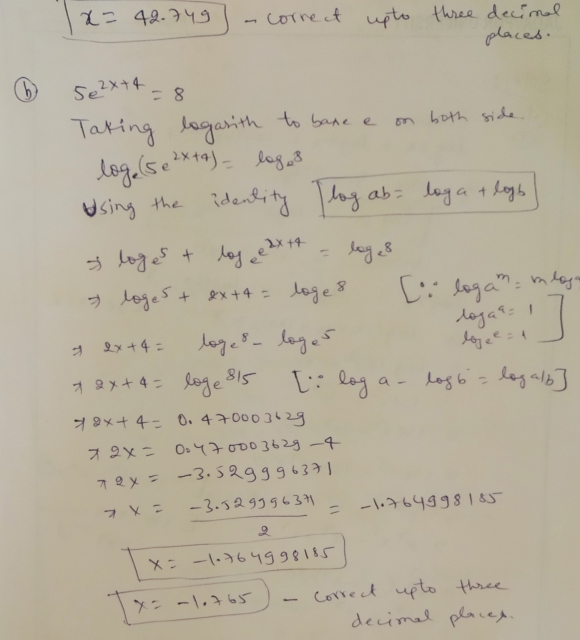 x = 42.749 - correct upto three decimal
places.
(b) 5e^{2x+4} = 8
Taking logarith to base e on both side.
log_e(5e^{2x+4}) = log_e 8
Using the identity log ab = log a + log b
⇒ log_e 5 + log_e e^{2x+4} = log_e 8
⇒ log_e 5 + 2x+4 = log_e 8 [∵ log a^m = m log a
log_a a = 1
log_e e = 1]
⇒ 2x+4 = log_e 8 - log_e 5
⇒ 2x+4 = log_e 8/5 [∵ log a - log b = log a/b]
⇒ 2x+4 = 0.470003629
⇒ 2x = 0.470003629 - 4
⇒ 2x = -3.529996371
⇒ x = -3.529996371/2 = -1.764998185
x = -1.764998185
x = -1.765 - correct upto three
decimal places.